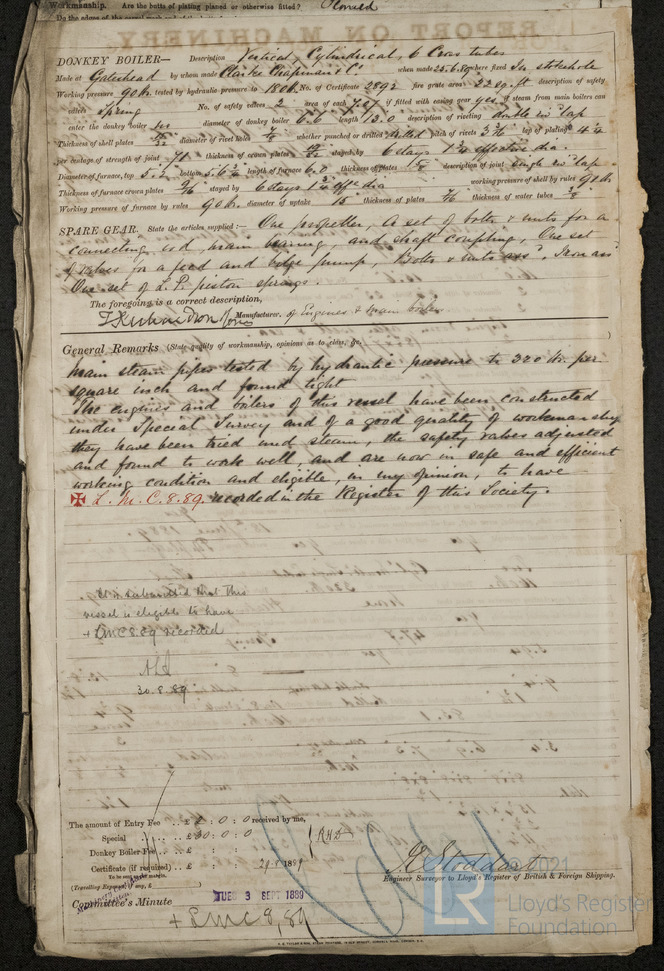 Workmanship. Are the butts of plating planed or otherwise fitted?
DONKEY BOILER— Description Vertical, Cylindrical, 6 Cross tubes
Made at Gateshead by whom made Clarke Chapman & Co when made 25.6.89 where fixed In stokehole
Working pressure 90 lb. tested by hydraulic pressure to 180 lb. No. of Certificate 2892 fire grate area 22 sq. ft description of safety
valves Spring No. of safety valves 2 area of each 7.07 if fitted with easing gear yes if steam from main boilers can
enter the donkey boiler no diameter of donkey boiler 6.6 length 13.0 description of riveting double riv lap
Thickness of shell plates diameter of rivet holes 7/8 whether punched or drilled drilled pitch of rivets lap of plating
per centage of strength of joint 71 thickness of crown plates stayed by 6 stays 1 3/4 effective dia.
Diameter of furnace, top 5.2 bottom length of furnace thickness of plates description of joint single riv lap
Thickness of furnace crown plates stayed by 6 stays 1 3/4 eff. dia working pressure of shell by rules 90 lb
Working pressure of furnace by rules 90 lb. diameter of uptake 15" thickness of plates 7/16 thickness of water tubes 3/8
SPARE GEAR. State the articles supplied:— One propeller, A set of bolts & nuts for a
connecting rod, main bearing, and shaft coupling, One set
of valves for a feed and bilge pump, Bolts & nuts assd, Iron assd
One set of L.P. piston springs.
The foregoing is a correct description,
T. Richardson & Sons Manufacturer. of Engines & main boilers
General Remarks (State quality of workmanship, opinions as to class, &c.
Main steam pipes tested by hydraulic pressure to 320 lb. per
square inch and found tight
The engines and boilers of this vessel have been constructed
under Special Survey and of a good quality of workmanship
they have been tried under steam, the safety valves adjusted
and found to work well, and are now in safe and efficient
working condition and eligible, in my opinion, to have
✠ L.M.C. 8.89. recorded in the Register of this Society.
It is submitted that this
vessel is eligible to have
+ LMC 8.89 recorded
30.8.89
The amount of Entry Fee .. £ 2 : 0 : 0 received by me,
Special .. .. £ 30 : 0 : 0
Donkey Boiler Fee .. £ : :
Certificate (if required) .. £ : : 29.8.1889
To be sent as per margin.
(Travelling Expenses, if any, £ )
J. G. Stoddart
Engineer Surveyor to Lloyd's Register of British & Foreign Shipping.
Committee's Minute
TUES 3 SEPT 1889
+ LMC 8,89
© 2021
LR
Lloyd's Register
Foundation